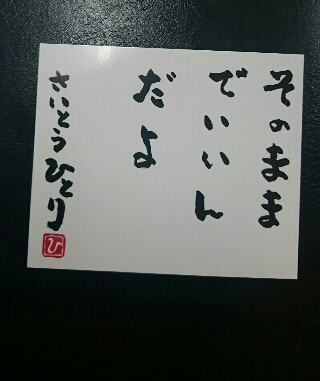 そのまま
でいいん
だよ
さいとうひとり
ひ